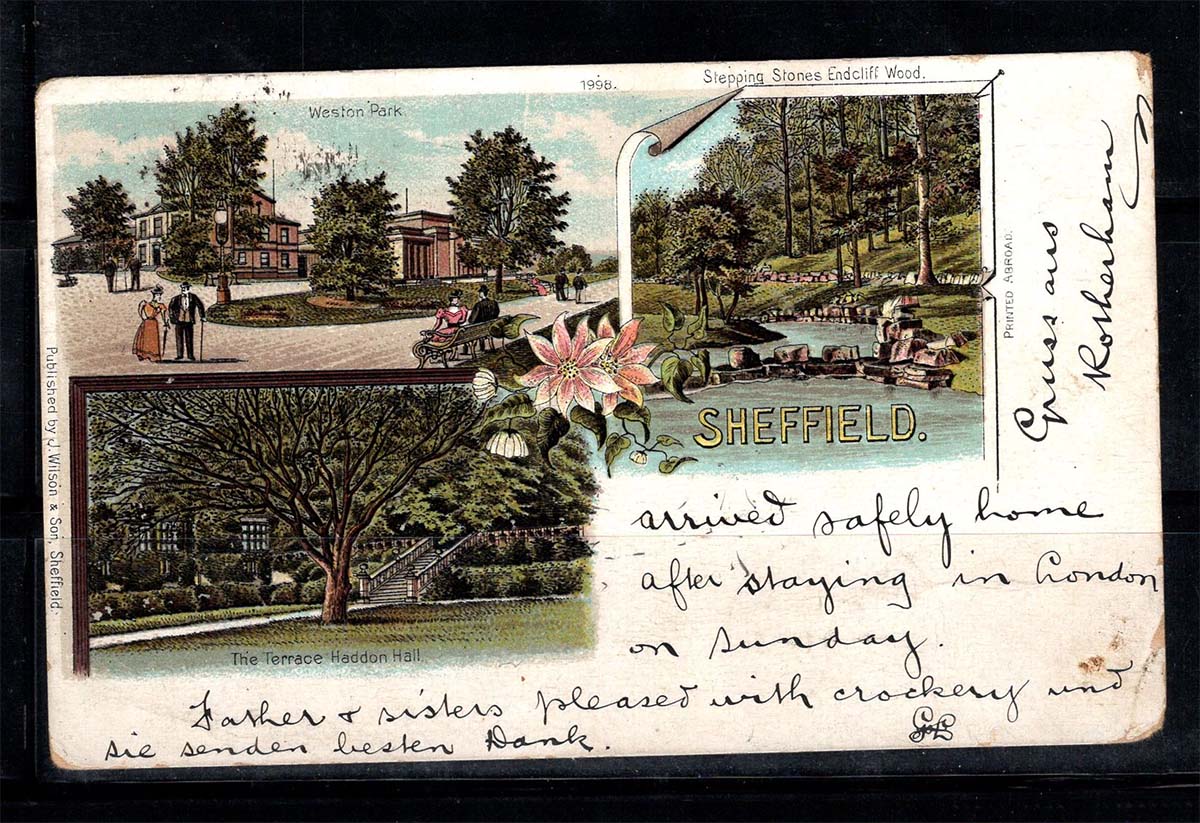 1998.
Stepping Stones Endcliff Wood.
Weston Park.
SHEFFIELD.
The Terrace Haddon Hall.
Published by J. Wilson & Son, Sheffield.
Printed Abroad.
Gruss aus
Rotherham
arrived safely home
after staying in London
on Sunday.
Father & sisters pleased with crockery und
sie senden besten Dank.